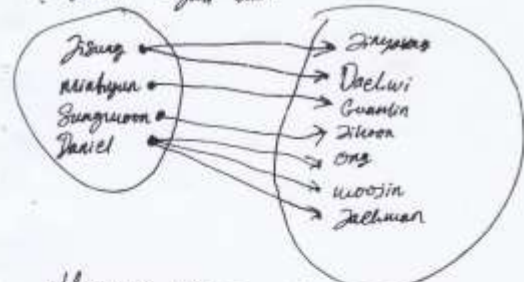 Jisung
Minhyun
Sungwoon
Daniel
Jinyoung
Daehwi
Guanlin
Jihoon
Ong
Woojin
Jaehwan